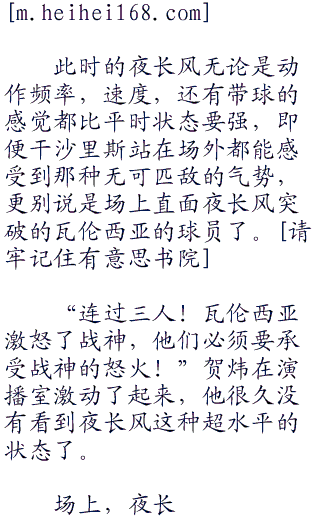 [m.heihei168.com]
此时的夜长风无论是动
作频率，速度，还有带球的
感觉都比平时状态要强，即
便干沙里斯站在场外都能感
受到那种无可匹敌的气势，
更别说是场上直面夜长风突
破的瓦伦西亚的球员了。[请
牢记住有意思书院]
“连过三人！瓦伦西亚
激怒了战神，他们必须要承
受战神的怒火！”贺炜在演
播室激动了起来，他很久没
有看到夜长风这种超水平的
状态了。
场上，夜长